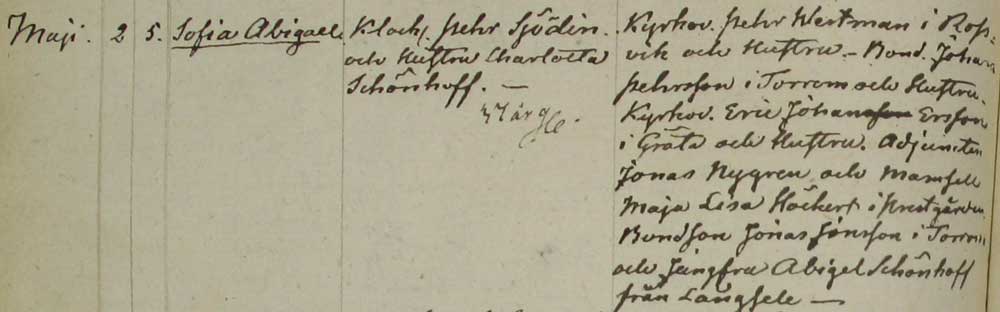 Maji. 2 5. Sofia Abigael. Klock. Pehr Sjödin.
och Hustru Charlotta
Schönhoff. —
37 år gl.
Kyrkov. Pehr Westman i Rops-
vik och Hustru. - Bond. Johan
Pehrsson i Torrom och Hustru.
Kyrkov. Eric Johansson Ersson
i Gråta och Hustru. Adjuncten
Jonas Nygren och Mamsell
Maja Lisa Höckert i Prestgården
Bondson Jonas Jonsson i Torrom
och Jungfru Abigel Schönhoff
från Långsele —